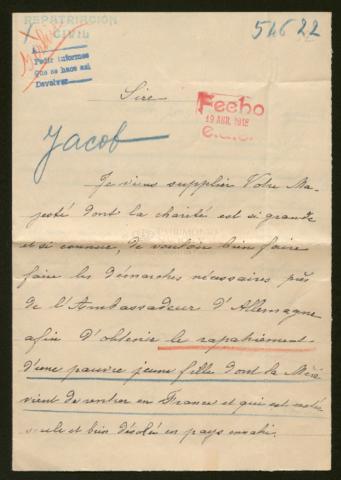 REPATRIACIÓN
CIVIL
51622
A
Pedir informes
Que se hace así
Devolver
Sire
Fecho
19 ABR. 1918
Jacob
Je viens supplier Votre Ma-
jesté dont la charité est si grande
et si connue, de vouloir bien faire
faire les démarches nécessaires près
de l'Ambassadeur d'Allemagne
afin d'obtenir le rapatriement
d'une pauvre jeune fille dont la Mère
vient de rentrer en France et qui est restée
seule et bien désolée en pays envahi.